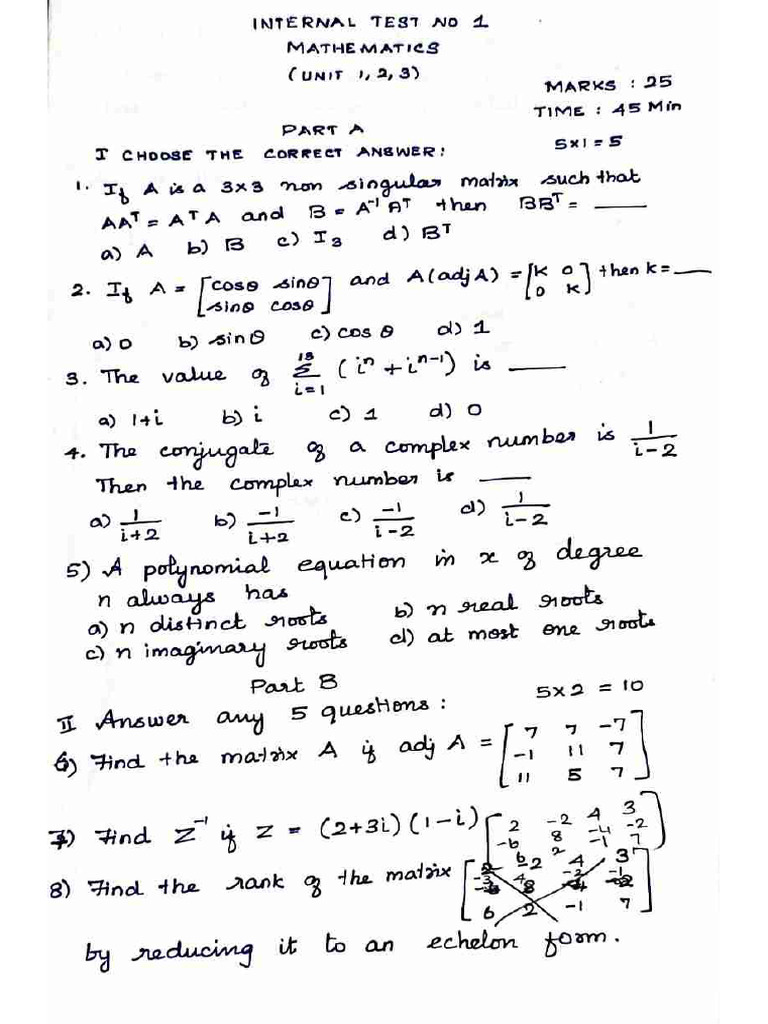 INTERNAL TEST NO 1
MATHEMATICS
(UNIT 1, 2, 3)
MARKS : 25
TIME : 45 Min
PART A
I CHOOSE THE CORRECT ANSWER: 5x1=5
1. If A is a 3x3 non singular matrix such that
AAᵀ = AᵀA and B = A⁻¹Aᵀ then BBᵀ = ____
a) A b) B c) I₃ d) Bᵀ
2. If A = [cosθ sinθ; sinθ cosθ] and A(adj A) = [K 0; 0 K] then k = ___
a) 0 b) sinθ c) cos θ d) 1
3. The value of Σ_{i=1}^{13} (iⁿ + iⁿ⁻¹) is ____
a) 1+i b) i c) 1 d) 0
4. The conjugate of a complex number is 1/(i-2)
Then the complex number is ____
a) 1/(i+2) b) -1/(i+2) c) -1/(i-2) d) 1/(i-2)
5) A polynomial equation in x of degree
n always has
a) n distinct roots b) n real roots
c) n imaginary roots d) at most one roots
Part B
5x2 = 10
II Answer any 5 questions:
6) Find the matrix A if adj A = [7 7 -7; -1 11 7; 11 5 7]
7) Find Z⁻¹ if Z = (2+3i)(1-i)
8) Find the rank of the matrix
by reducing it to an echelon form.